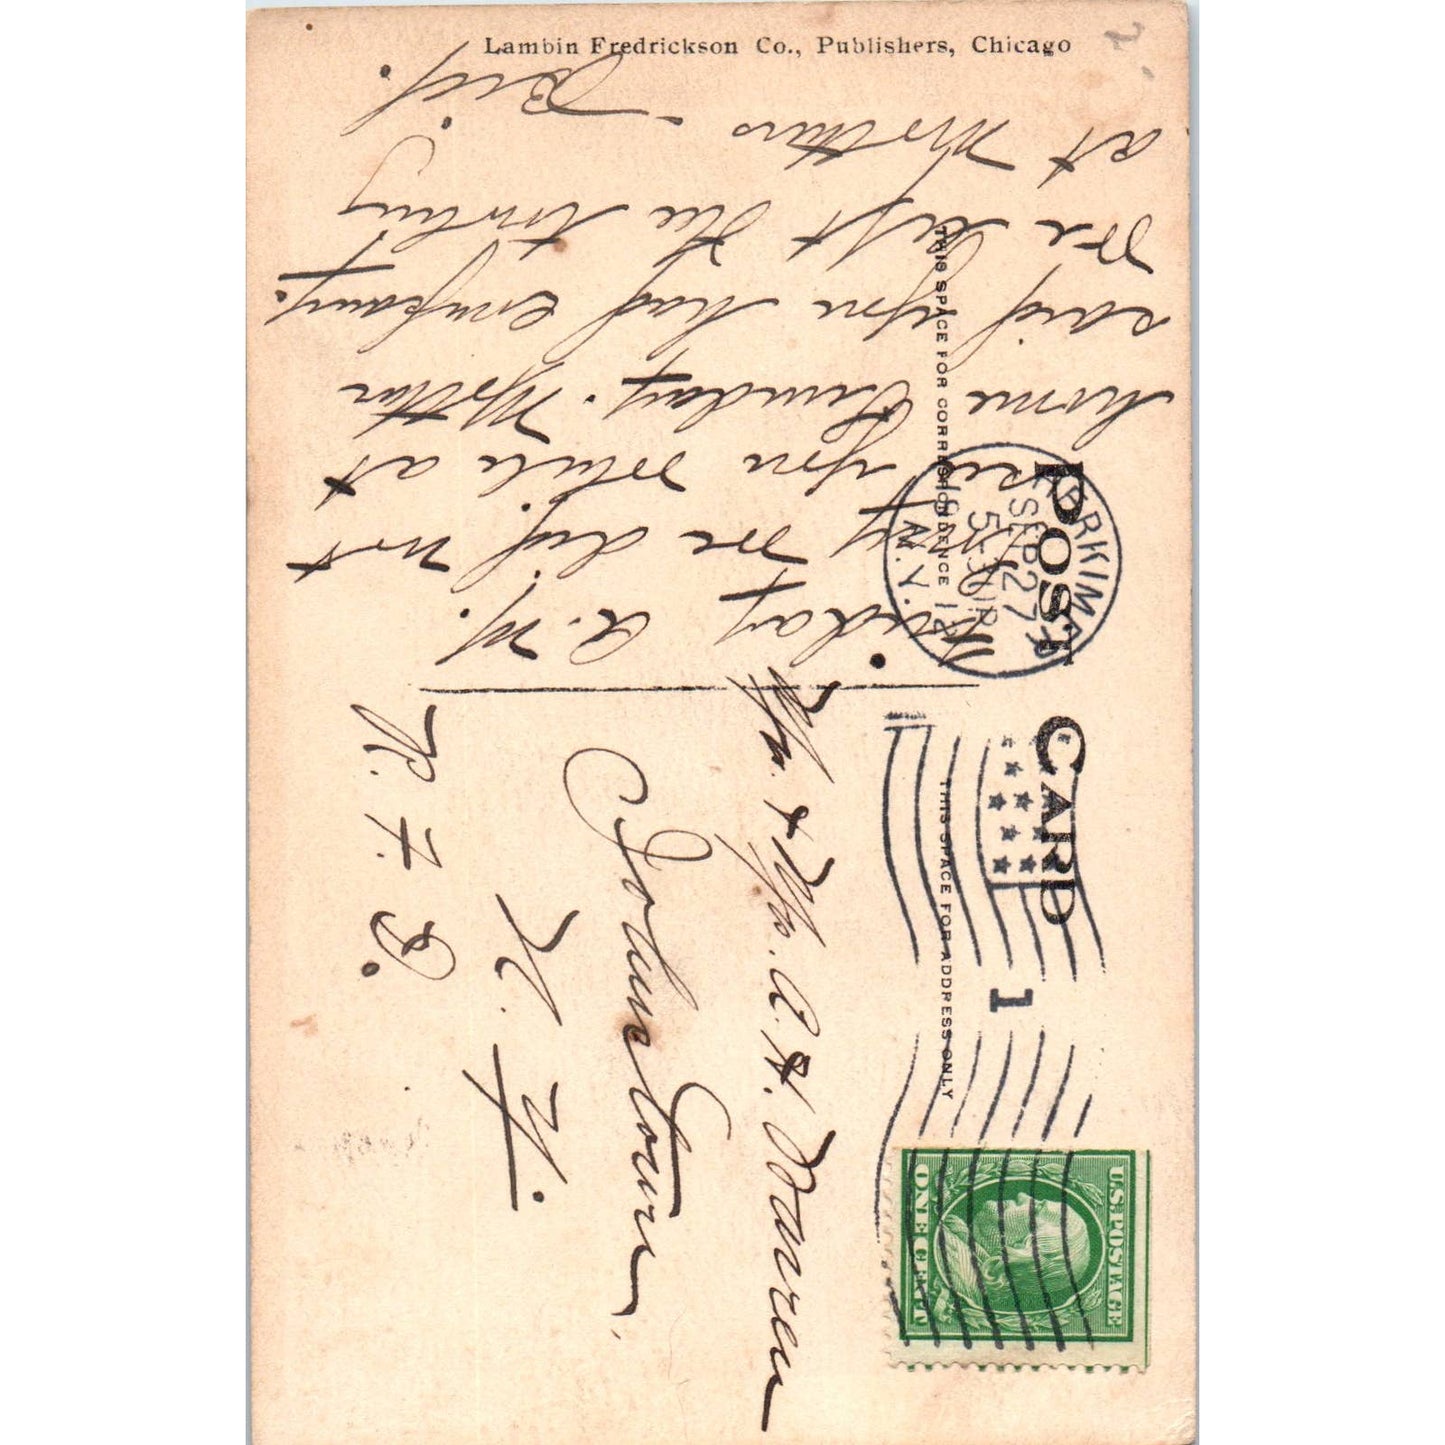 Lambin Fredrickson Co., Publishers, Chicago
POST CARD
THIS SPACE FOR CORRESPONDENCE
THIS SPACE FOR ADDRESS ONLY
HERKIMER
SEP 27
5-30 P
1912
N.Y.
1
U.S. POSTAGE
ONE CENT
Friday A.M.
Sorry we did not
see you while at
home Sunday. Mother
said you had company.
We left the
at Mothers -
Mr. & Mrs. A. H. Warren
Johnstown,
N. Y.
R. F. D.